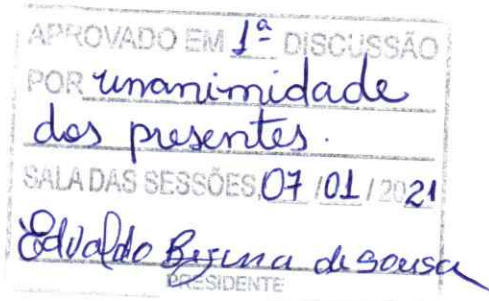 APROVADO EM 1ª DISCUSSÃO
POR unanimidade
dos presentes.
SALA DAS SESSÕES, 07 / 01 / 2021
Edvaldo de Sousa
PRESIDENTE